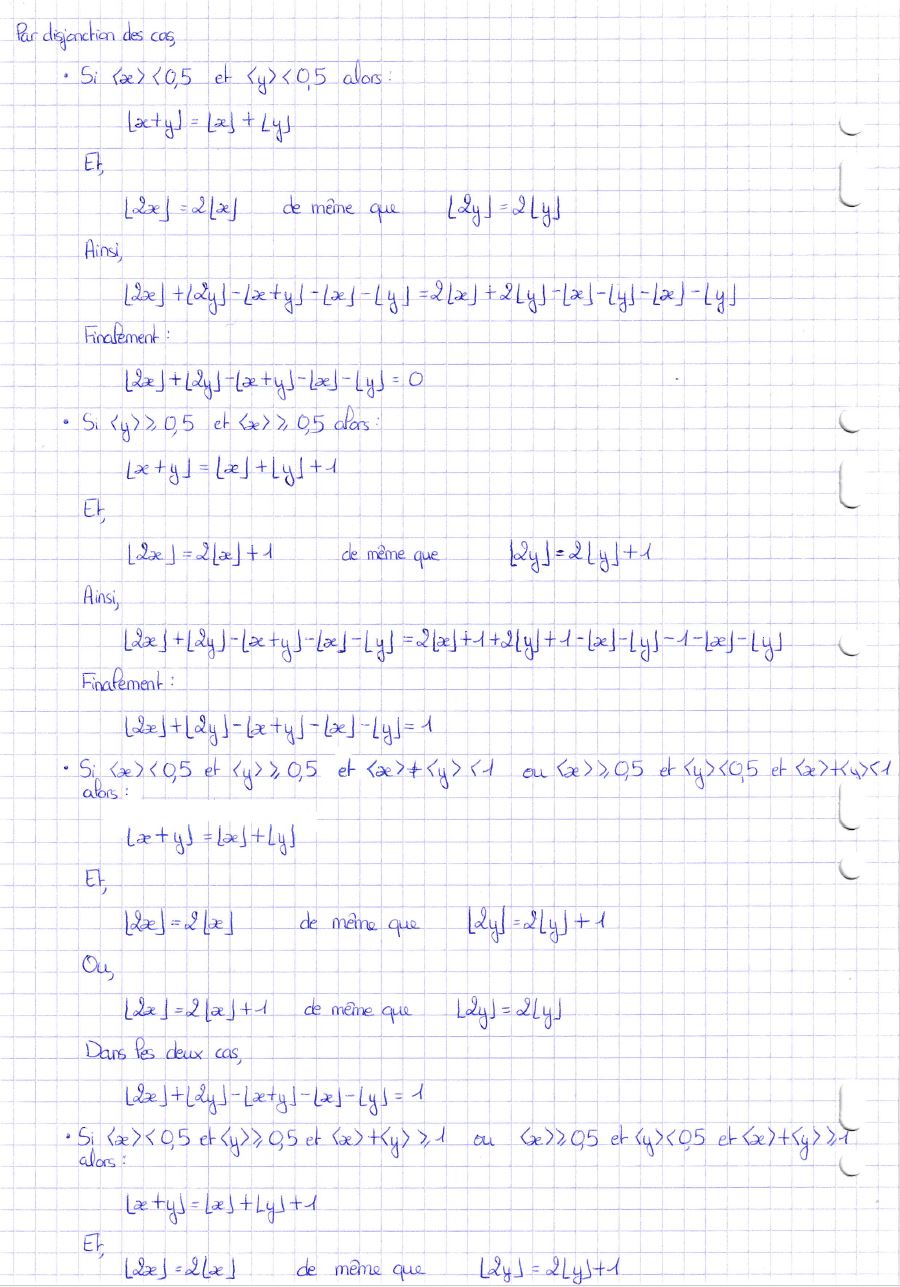 Par disjonction des cas,
• Si ⟨x⟩<0,5 et ⟨y⟩<0,5 alors :
⌊x+y⌋ = ⌊x⌋ + ⌊y⌋
Et,
⌊2x⌋ = 2⌊x⌋ de même que ⌊2y⌋ = 2⌊y⌋
Ainsi,
⌊2x⌋ + ⌊2y⌋ - ⌊x+y⌋ - ⌊x⌋ - ⌊y⌋ = 2⌊x⌋ + 2⌊y⌋ - ⌊x⌋ - ⌊y⌋ - ⌊x⌋ - ⌊y⌋
Finalement :
⌊2x⌋ + ⌊2y⌋ - ⌊x+y⌋ - ⌊x⌋ - ⌊y⌋ = 0
• Si ⟨y⟩ ⩾ 0,5 et ⟨x⟩ ⩾ 0,5 alors :
⌊x+y⌋ = ⌊x⌋ + ⌊y⌋ + 1
Et,
⌊2x⌋ = 2⌊x⌋ + 1 de même que ⌊2y⌋ = 2⌊y⌋ + 1
Ainsi,
⌊2x⌋ + ⌊2y⌋ - ⌊x+y⌋ - ⌊x⌋ - ⌊y⌋ = 2⌊x⌋ + 1 + 2⌊y⌋ + 1 - ⌊x⌋ - ⌊y⌋ - 1 - ⌊x⌋ - ⌊y⌋
Finalement :
⌊2x⌋ + ⌊2y⌋ - ⌊x+y⌋ - ⌊x⌋ - ⌊y⌋ = 1
• Si ⟨x⟩<0,5 et ⟨y⟩ ⩾ 0,5 et ⟨x⟩+⟨y⟩<1 ou ⟨x⟩ ⩾ 0,5 et ⟨y⟩<0,5 et ⟨x⟩+⟨y⟩<1
alors :
⌊x+y⌋ = ⌊x⌋ + ⌊y⌋
Et,
⌊2x⌋ = 2⌊x⌋ de même que ⌊2y⌋ = 2⌊y⌋ + 1
Ou,
⌊2x⌋ = 2⌊x⌋ + 1 de même que ⌊2y⌋ = 2⌊y⌋
Dans les deux cas,
⌊2x⌋ + ⌊2y⌋ - ⌊x+y⌋ - ⌊x⌋ - ⌊y⌋ = 1
• Si ⟨x⟩<0,5 et ⟨y⟩ ⩾ 0,5 et ⟨x⟩+⟨y⟩ ⩾ 1 ou ⟨x⟩ ⩾ 0,5 et ⟨y⟩<0,5 et ⟨x⟩+⟨y⟩ ⩾ 1
alors :
⌊x+y⌋ = ⌊x⌋ + ⌊y⌋ + 1
Et,
⌊2x⌋ = 2⌊x⌋ de même que ⌊2y⌋ = 2⌊y⌋ + 1